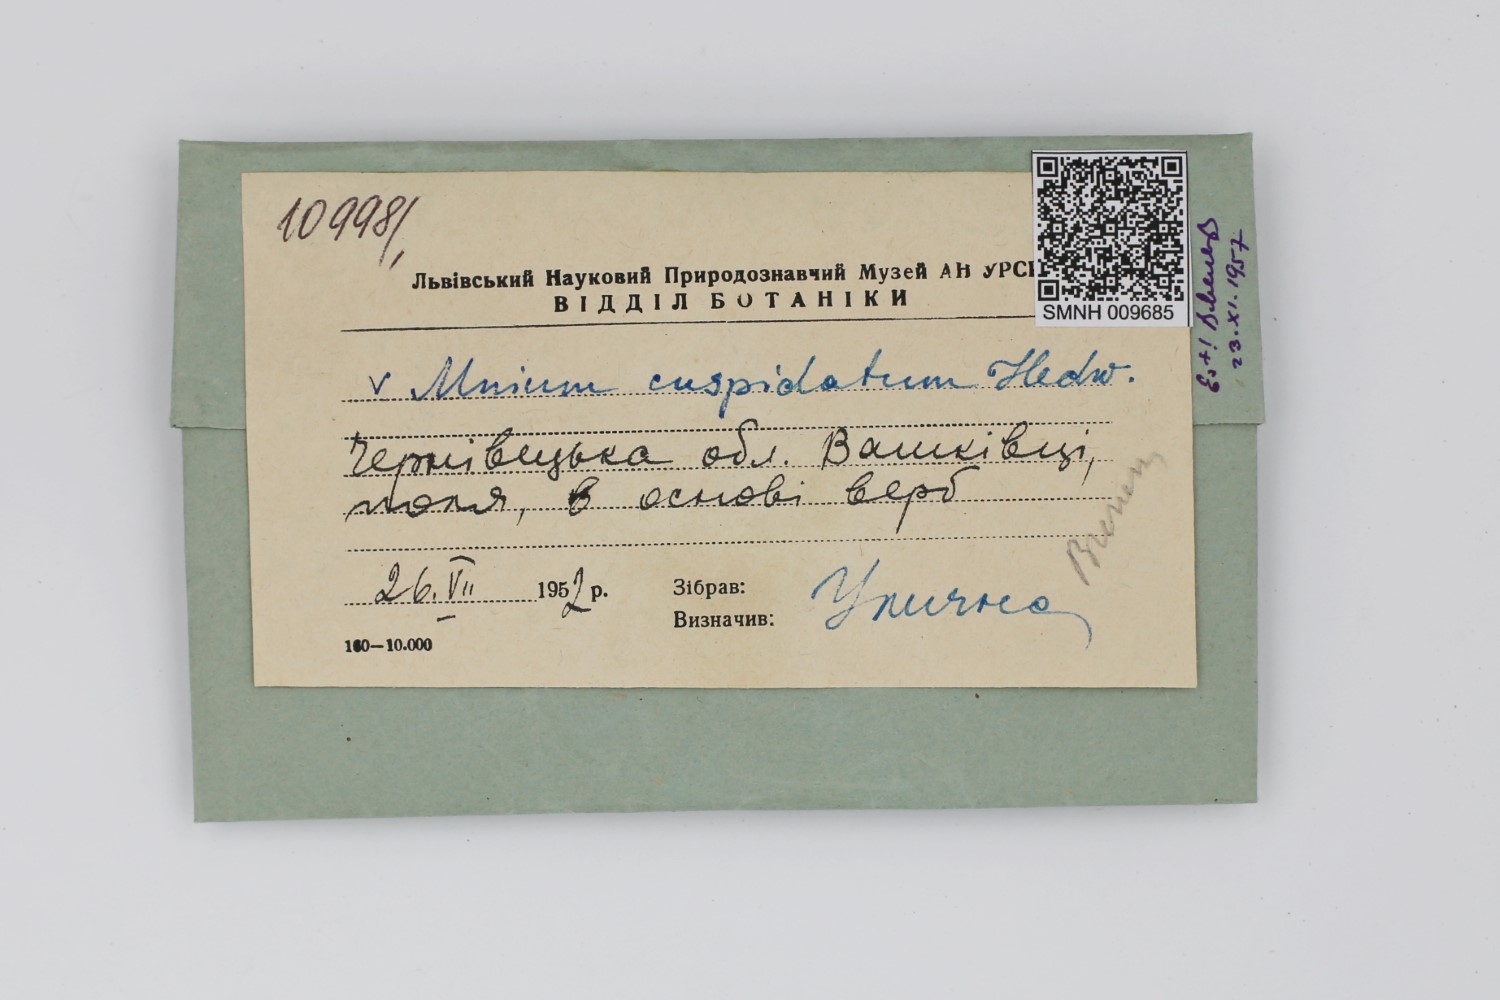 10998/1
Львівський Науковий Природознавчий Музей АН УРСР
ВІДДІЛ БОТАНІКИ
SMNH 009685
v Mnium cuspidatum Hedw.
Чернівецька обл. Вашківці,
поля, в основі верб
26.VII 1952 р.
Зібрав:
Визначив: Улична
160—10.000
Est!
23.XI.1957